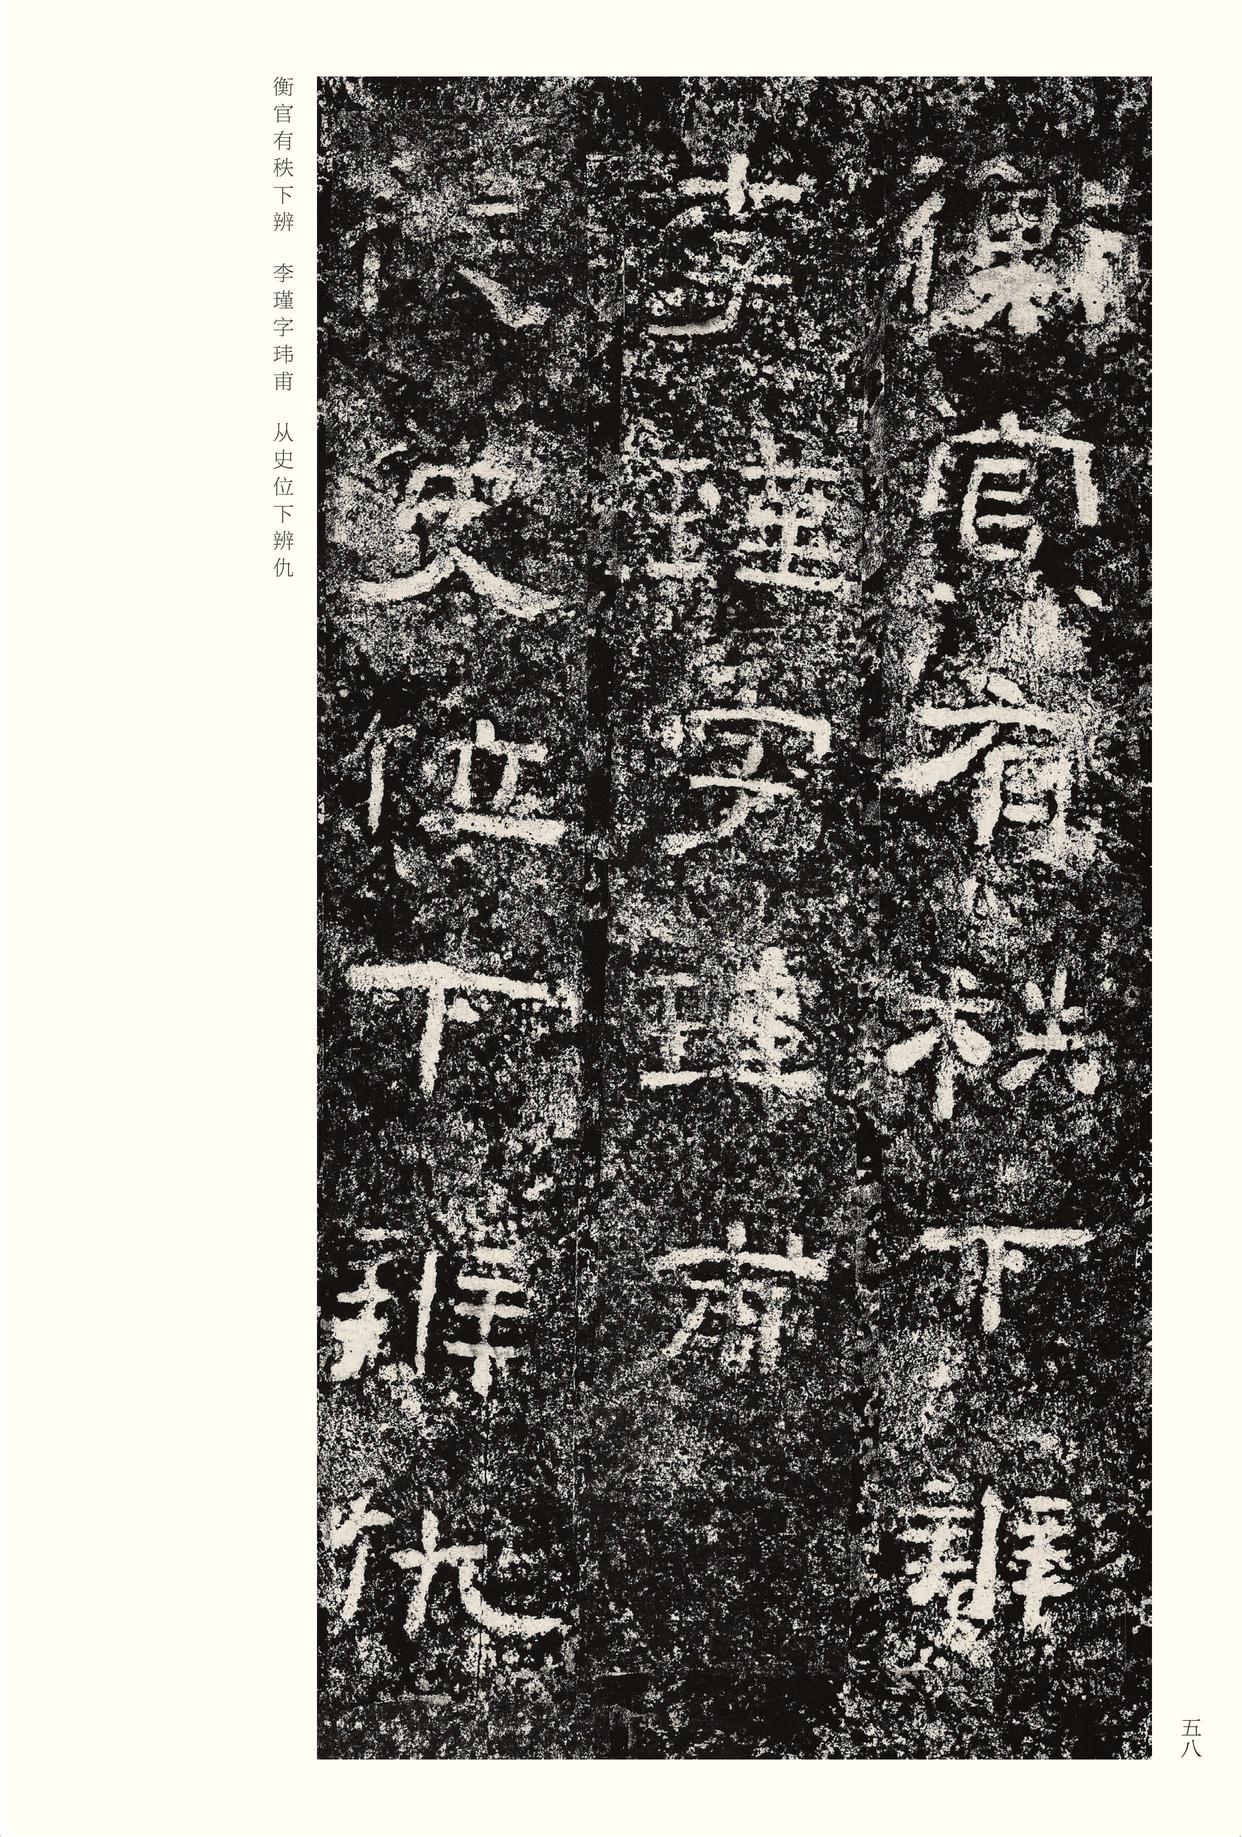 衡官有秩下辨
李瑾字瑋甫
史位下辨仇
衡官有秩下辨　李瑾字玮甫　从史位下辨仇
五八